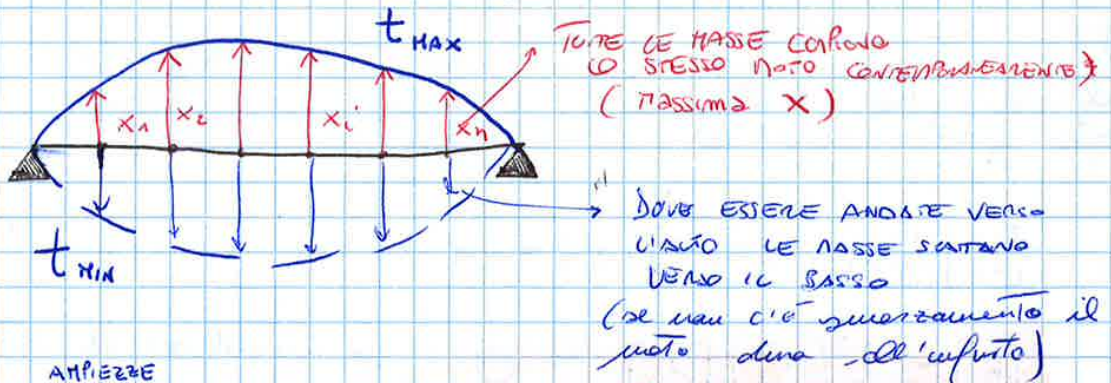 t MAX
TUTTE LE MASSE
LO STESSO MOTO CONTEMPORANEAMENTE
(massima X)
x1 x2 xi xn
t MIN
DOVO ESSERE ANDATE VERSO
L'ALTO LE MASSE SCATTANO
VERSO IL BASSO
(se non c'è smorzamento il
moto dura all'infinito)
AMPIEZZE